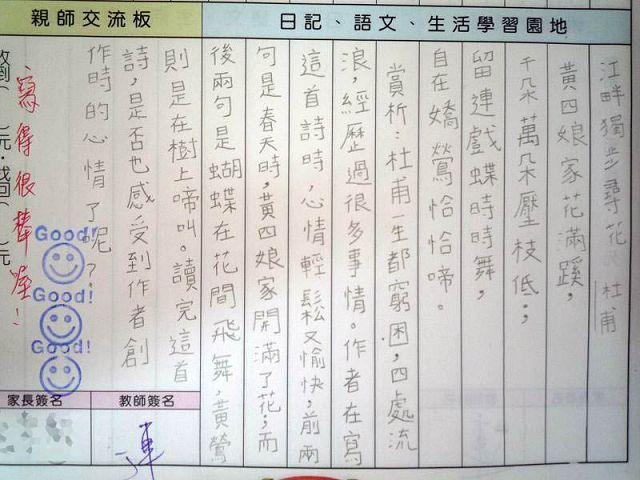 親師交流板
日記、語文、生活學習園地
江畔獨步尋花 杜甫
黃四娘家花滿蹊，
千朵萬朵壓枝低；
留連戲蝶時時舞，
自在嬌鶯恰恰啼。
賞析：杜甫一生都窮困，四處流
浪，經歷過很多事情。作者在寫
這首詩時，心情輕鬆又愉快，前兩
句是春天時，黃四娘家開滿了花；而
後兩句是蝴蝶在花間飛舞，黃鶯
則是在樹上啼叫。讀完這首
詩，是否也感受到作者創
作時的心情了呢？
寫得很棒喔！
Good!
Good!
Good!
家長簽名
教師簽名